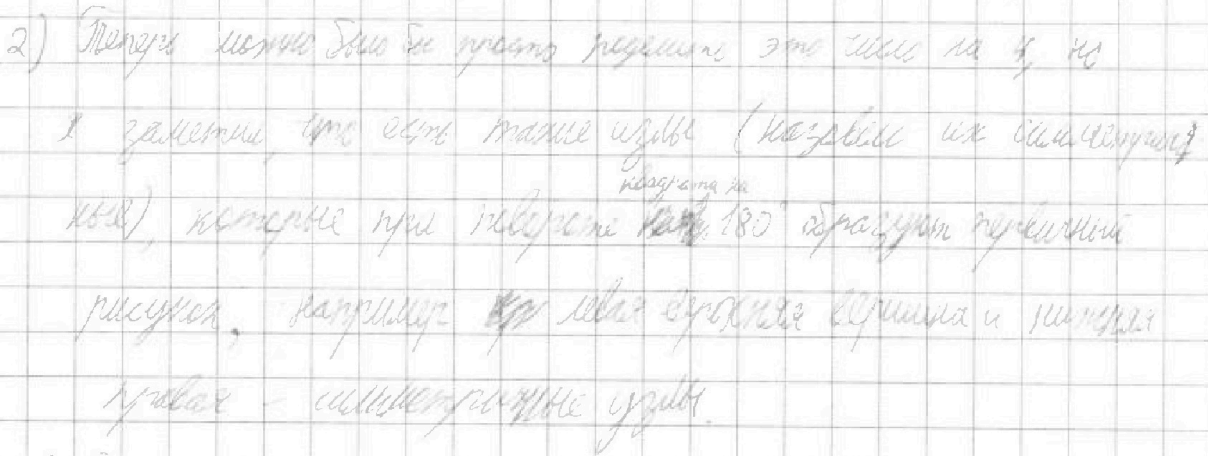 2) Теперь можно было бы просто поделить это число на 4, но
я заметил, что есть такие узлы (назовём их симметрич
ные), которые при повороте квадрата на 180° образуют первичный
рисунок, например левая верхняя вершина и нижняя
правая - симметричные узлы.